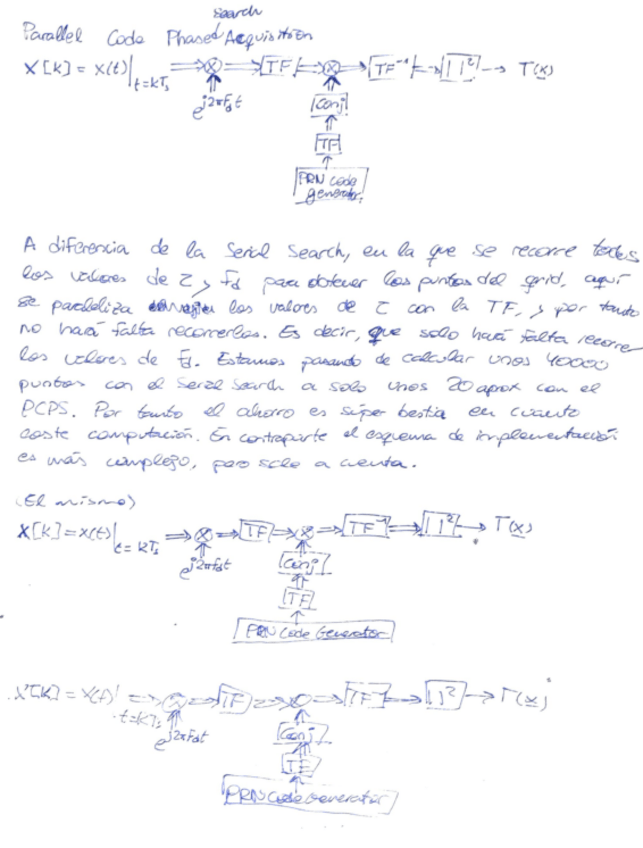 search
Parallel Code Phase Acquisition
X[k] = x(t)|t=kTs ⇒ ⊗ ⇒ [TF] ⇒ ⊗ → [TF⁻¹] → [| |²] → T(x)
e^j2πfdt [Conj]
[TF]
[PRN code
generator]
A diferencia de la Serial Search, en la que se recorre todos
los valores de τ y fd para obtener los puntos del grid, aquí
se paraleliza los valores de τ con la TF, y por tanto
no hará falta recorrerlos. Es decir, que solo hará falta recorrer
los valores de fd. Estamos pasando de calcular unos 40000
puntos con el Serial Search a solo unos 20 aprox con el
PCPS. Por tanto el ahorro es súper bestia en cuanto
coste computación. En contraparte el esquema de implementación
es más complejo, pero sale a cuenta.
(El mismo)
X[k] = x(t)|t=kTs ⇒ ⊗ ⇒ [TF] ⇒ ⊗ ⇒ [TF⁻¹] ⇒ [| |²] → T(x)
e^j2πfdt [Conj]
[TF]
[PRN Code Generator]
X[k] = x(t)|t=kTs ⇒ ⊗ ⇒ [TF] ⇒ ⊗ ⇒ [TF⁻¹] ⇒ [| |²] → T(x)
e^j2πfdt [Conj]
[TF]
[PRN Code Generator]